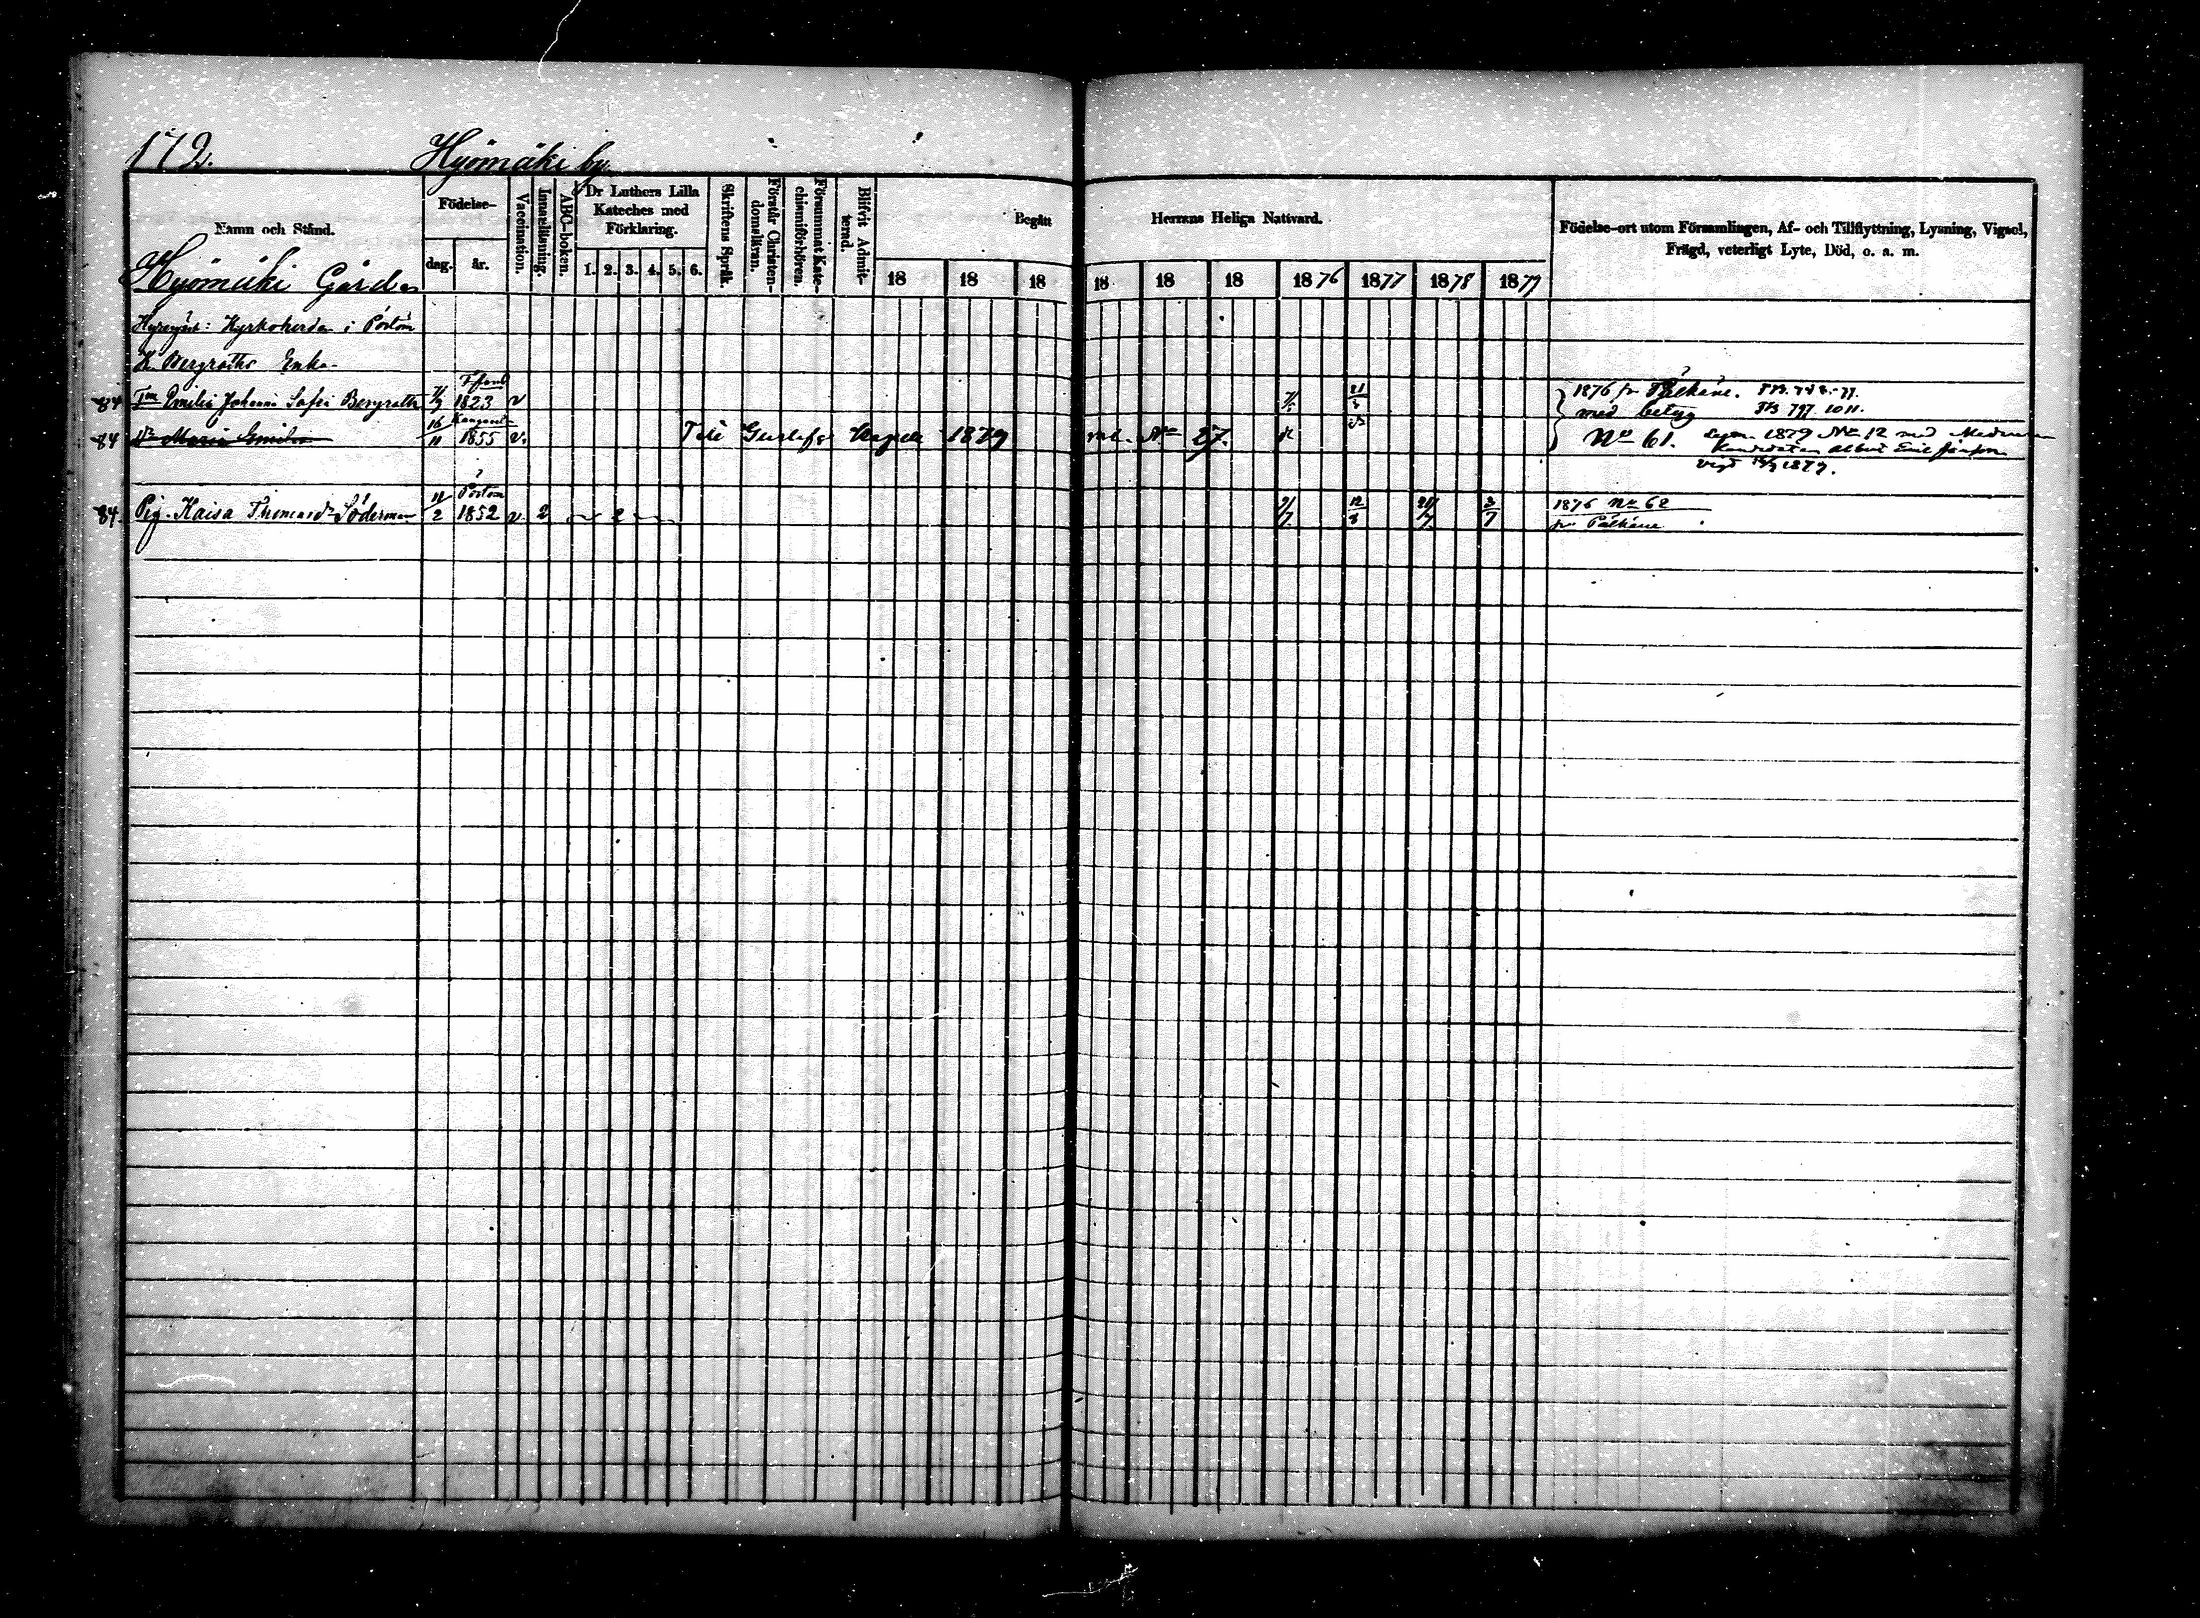 172.
Hyömäki by.
Namn och Stånd.
Födelse-
dag.
år.
Vaccination.
Innanläsning.
ABC-boken.
Dr Luthers Lilla
Kateches med
Förklaring.
1. 2. 3. 4. 5. 6.
Skriftens Språk.
Förstår Christen-
domsläran.
Försummat Kate-
chismiförhören.
Blifvit Admit-
terad.
Begått
Herrans Heliga Nattvard.
18 18 18 18 18 18 1876 1877 1878 1879
Födelse-ort utom Församlingen, Af- och Tillflyttning, Lysning, Vigsel,
Frägd, veterligt Lyte, Död, o. a. m.
Hyömäki Gård
Kyrkoherden i Pörtom
Bergroths Enka
84 Emilia Johanna Sofia Bergroth 1823 v 21/8 1876 fr Pälkäne.
med betyg
84 Maria Emilia 16/11 1855 v. Till Gustafs Kapell 1879 No 27. No 61. 1879 No 12 med
Kandidaten Albert Emil
vigd 1879.
Pörtom
84. Pig. Kaisa Thomasdr Söderman 11/2 1852 v 2 2 9/7 12/8 21/7 3/7 1876 No 62
fr Pälkäne